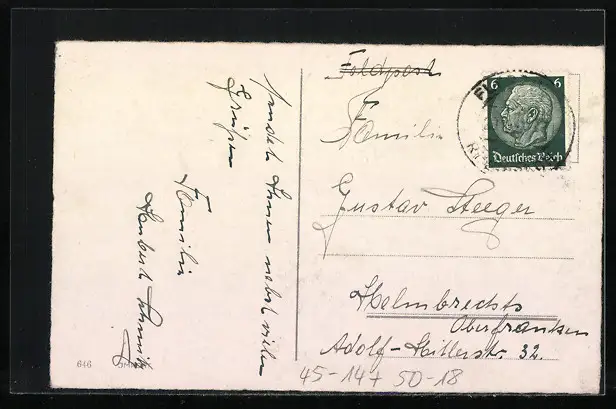 sendet Ihnen nebst vielen
Grüßen
Familie
Herbert Schmidt
Feldpost
Familie
Gustav Steeger
Helmbrechts
Oberfranken
Adolf-Hitlerstr. 32.
45-14+50-18
6 6
Deutsches Reich
646